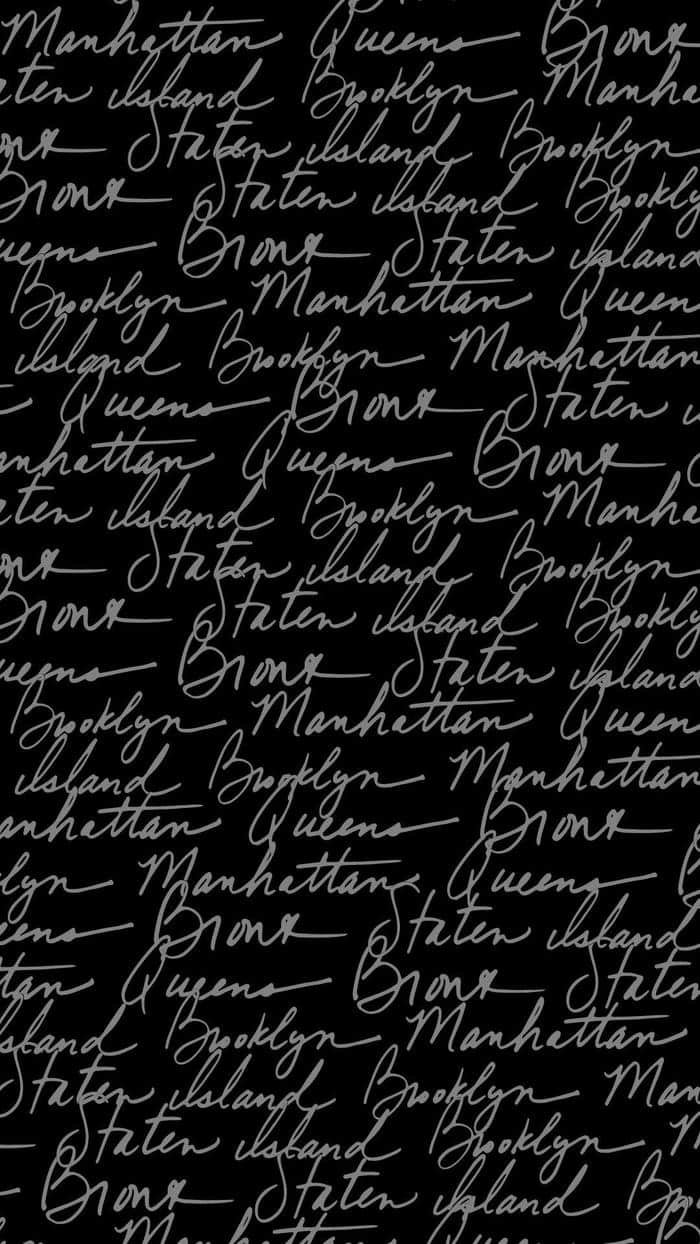 Manhattan Queens Bronx
aten Island Brooklyn Manha
onx Staten Island Brooklyn
Bronx Staten Island Brookly
ueens Bronx Staten Island
Brooklyn Manhattan Queen
Island Brooklyn Manhattan
Queens Bronx Staten
anhattan Queens Bronx
aten Island Brooklyn Manha
onx Staten Island Brooklyn
Bronx Staten Island Brookly
ueens Bronx Staten Island
Brooklyn Manhattan Queen
Island Brooklyn Manhattan
anhattan Queens Bronx
lyn Manhattan Queens
eens Bronx Staten Island
tan Queens Bronx Staten
sland Brooklyn Manhattan
Staten Island Brooklyn Man
Staten Island Brooklyn
Bronx Staten Island Bro
Manhattan Queens